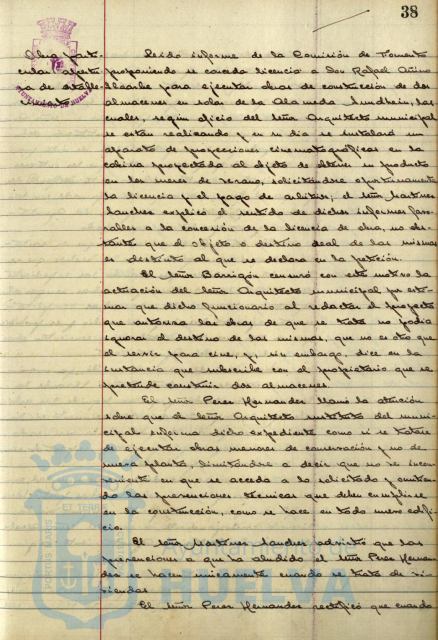 38
Obra par-
ticular apertu-
ra de estable-
cimiento
AYUNTAMIENTO DE HUELVA
Leido informe de la Comisión de Fomento
proponiendo se conceda licencia a Don Rafael
para ejecutar obras de construcción de dos
almacenes en solar de la Alameda Sundheim, las
cuales, según oficio del Señor Arquitecto municipal
se están realizando y en su dia se instalará un
aparato de proyecciones cinematográficas en la
cabina proyectada al objeto de obtener su producto
en los meses de verano, solicitándose oportunamente
la licencia y el pago de arbitrios; el Señor Martinez
Sanchez explicó el sentido de dichos informes favo-
rables a la concesión de la licencia de obra, no obs-
tante que el objeto o destino ideal de las mismas
es distinto al que se declara en la petición.
El Señor Barrigón censuró con este motivo la
actuación del Señor Arquitecto municipal por esti-
mar que dicho funcionario al redactar el proyecto
que autoriza las obras de que se trata no podia
ignorar el destino de las mismas, que no es otro que
el servir para cine, y, sin embargo, dice en la
instancia que subscribe con el propietario que se
pretende construir dos almacenes.
El Señor Perez Hernandez llamó la atención
sobre que el Señor Arquitecto sustituto del muni-
cipal informa dicho expediente como si se tratase
de ejecutar obras menores de conservación y no de
nueva planta, limitandose a decir que no ve incon-
veniente en que se acceda a lo solicitado y omitien-
do las prevenciones técnicas que deben cumplirse
en la construcción, como se hace en todo nuevo edifi-
cio.
El Señor Martinez Sanchez advirtió que las
prevenciones a que ha aludido el Señor Perez Hernan-
dez se hacen unicamente cuando se trata de vi-
viendas.
El Señor Perez Hernandez rectificó que cuando
Ayuntamiento de
HUELVA